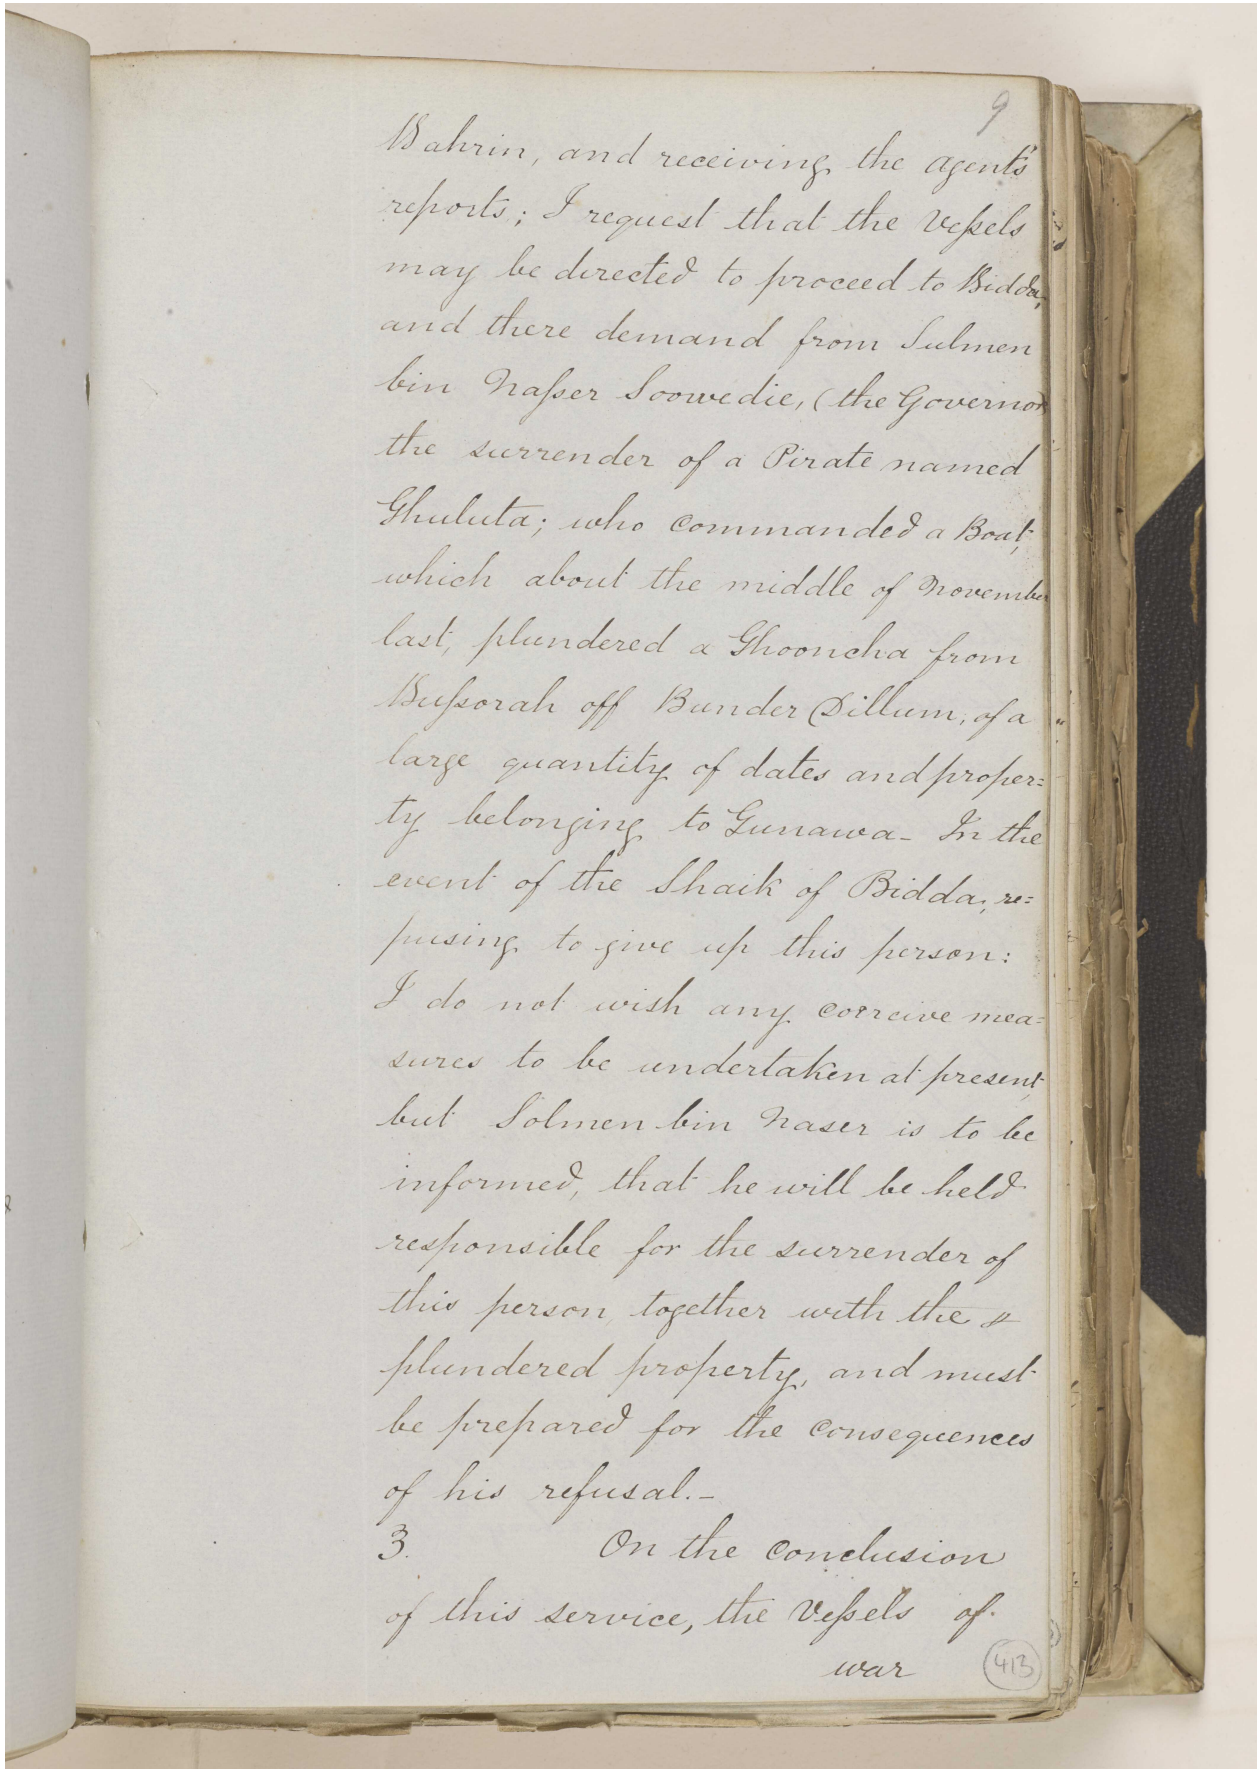 9
Bahrin, and receiving the Agent's
reports; I request that the Vessels
may be directed to proceed to Bidda,
and there demand from Sulmen
bin Nasser Soowedie, (the Governor
the surrender of a Pirate named
Ghuluta; who commanded a Boat,
which about the middle of November
last, plundered a Ghooncha from
Bussorah off Bunder Dillum, of a
large quantity of dates and proper=
ty belonging to Gunawa - In the
event of the Shaik of Bidda, re=
fusing to give up this person:
I do not wish any correive mea=
sures to be undertaken at present,
but Solmen bin Naser is to be
informed, that he will be held
responsible for the surrender of
this person, together with the
plundered property, and must
be prepared for the consequences
of his refusal. -
3. On the conclusion
of this service, the Vessels of
war
413